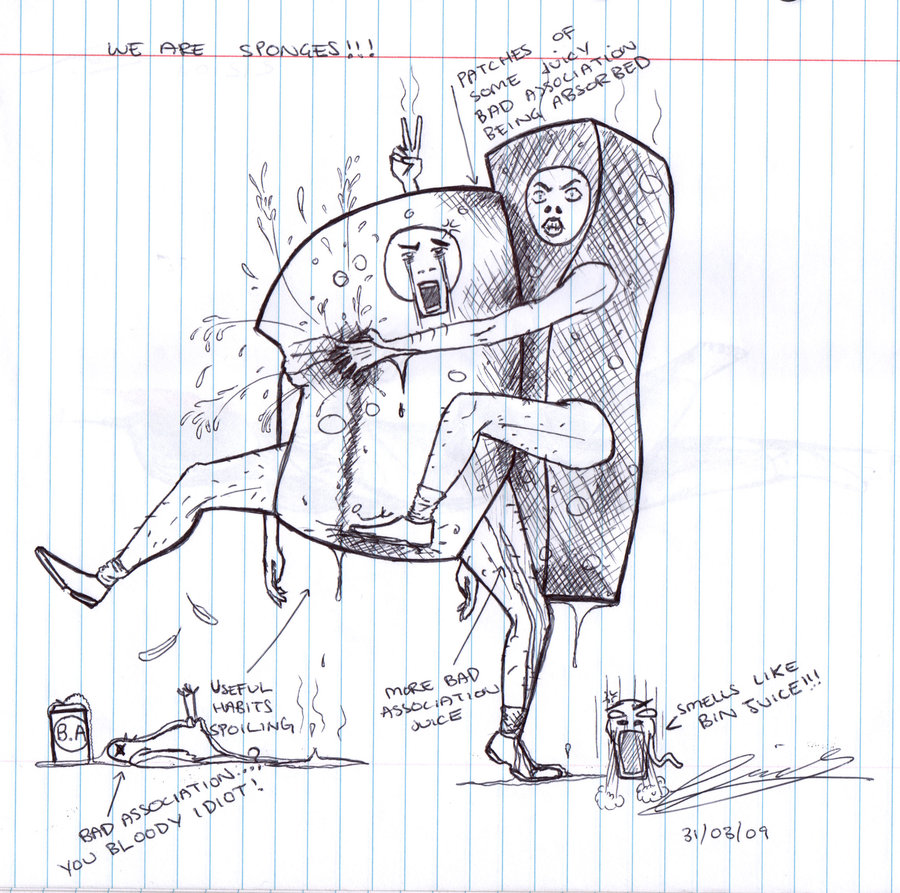 WE ARE SPONGES!!!
PATCHES OF
SOME JUICY
BAD ASSOCIATION
BEING ABSORBED
USEFUL
HABITS
SPOILING
MORE BAD
ASSOCIATION
JUICE
SMELLS LIKE
BIN JUICE!!!
B.A
BAD ASSOCIATION....
YOU BLOODY IDIOT!
31/03/09